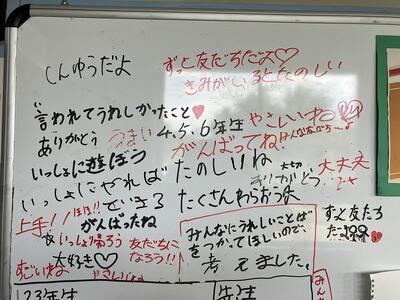 しんゆうだよ
ずっと友だちだよ♡
きみがいるとたのしい
言われてうれしかったこと♥
ありがとう
うまい
4.5.6年生
やさしいね
いっしょに遊ぼう
がんばってね!
いっしょにやれば
たのしいね
大切
ありがとう
大丈夫
できる
たくさんわらおうよ
上手!!
がんばったね
いっしょに帰ろう
友だちに
なろう!!
すごいね
大好き♡
やさしいね
みんなにうれしいことば
をつかってほしいので、
考えました。
ずっと友だち
だよ
2 3年生
先生
みん